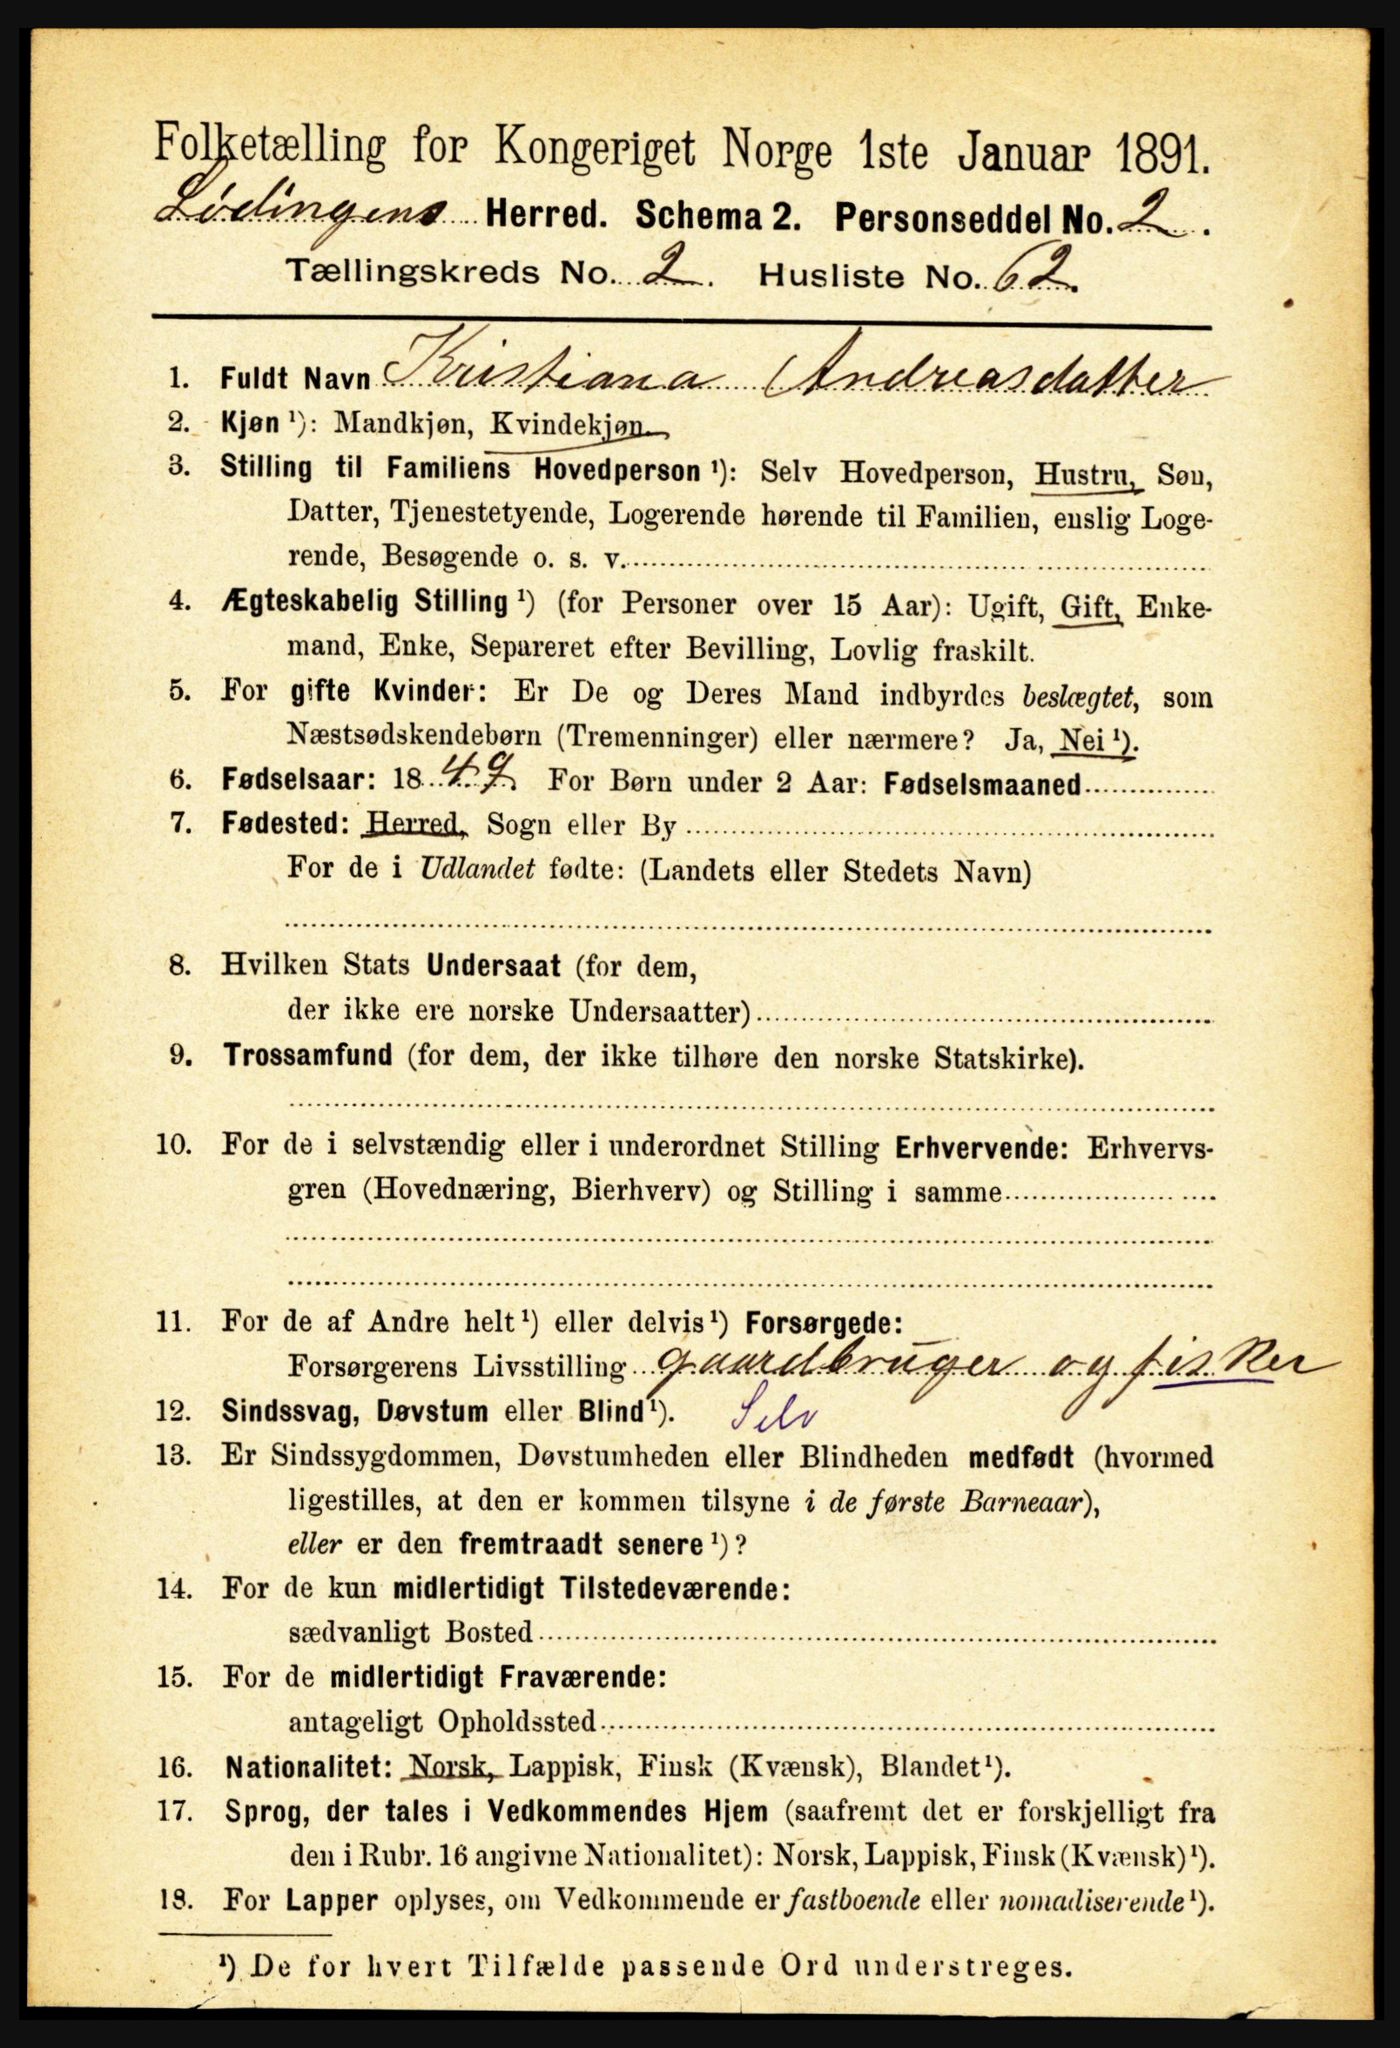 Folketælling for Kongeriget Norge 1ste Januar 1891.
Lødingens Herred. Schema 2. Personseddel No. 2.
Tællingskreds No. 2. Husliste No. 62.
1. Fuldt Navn Kristiana Andreasdatter
2. Kjøn ¹): Mandkjøn, Kvindekjøn.
3. Stilling til Familiens Hovedperson ¹): Selv Hovedperson, Hustru, Søn,
Datter, Tjenestetyende, Logerende hørende til Familien, enslig Loge-
rende, Besøgende o. s. v.
4. Ægteskabelig Stilling ¹) (for Personer over 15 Aar): Ugift, Gift, Enke-
mand, Enke, Separeret efter Bevilling, Lovlig fraskilt.
5. For gifte Kvinder: Er De og Deres Mand indbyrdes beslægtet, som
Næstsødskendebørn (Tremenninger) eller nærmere? Ja, Nei ¹).
6. Fødselsaar: 1849 For Børn under 2 Aar: Fødselsmaaned
7. Fødested: Herred, Sogn eller By
For de i Udlandet fødte: (Landets eller Stedets Navn)
8. Hvilken Stats Undersaat (for dem,
der ikke ere norske Undersaatter)
9. Trossamfund (for dem, der ikke tilhøre den norske Statskirke).
10. For de i selvstændig eller i underordnet Stilling Erhvervende: Erhvervs-
gren (Hovednæring, Bierhverv) og Stilling i samme
11. For de af Andre helt ¹) eller delvis ¹) Forsørgede:
Forsørgerens Livsstilling gaardbruger og fisker
12. Sindssvag, Døvstum eller Blind ¹). Selv
13. Er Sindssygdommen, Døvstumheden eller Blindheden medfødt (hvormed
ligestilles, at den er kommen tilsyne i de første Barneaar),
eller er den fremtraadt senere ¹)?
14. For de kun midlertidigt Tilstedeværende:
sædvanligt Bosted
15. For de midlertidigt Fraværende:
antageligt Opholdssted
16. Nationalitet: Norsk, Lappisk, Finsk (Kvænsk), Blandet ¹).
17. Sprog, der tales i Vedkommendes Hjem (saafremt det er forskjelligt fra
den i Rubr. 16 angivne Nationalitet): Norsk, Lappisk, Finsk (Kvænsk) ¹).
18. For Lapper oplyses, om Vedkommende er fastboende eller nomadiserende ¹).
¹) De for hvert Tilfælde passende Ord understreges.